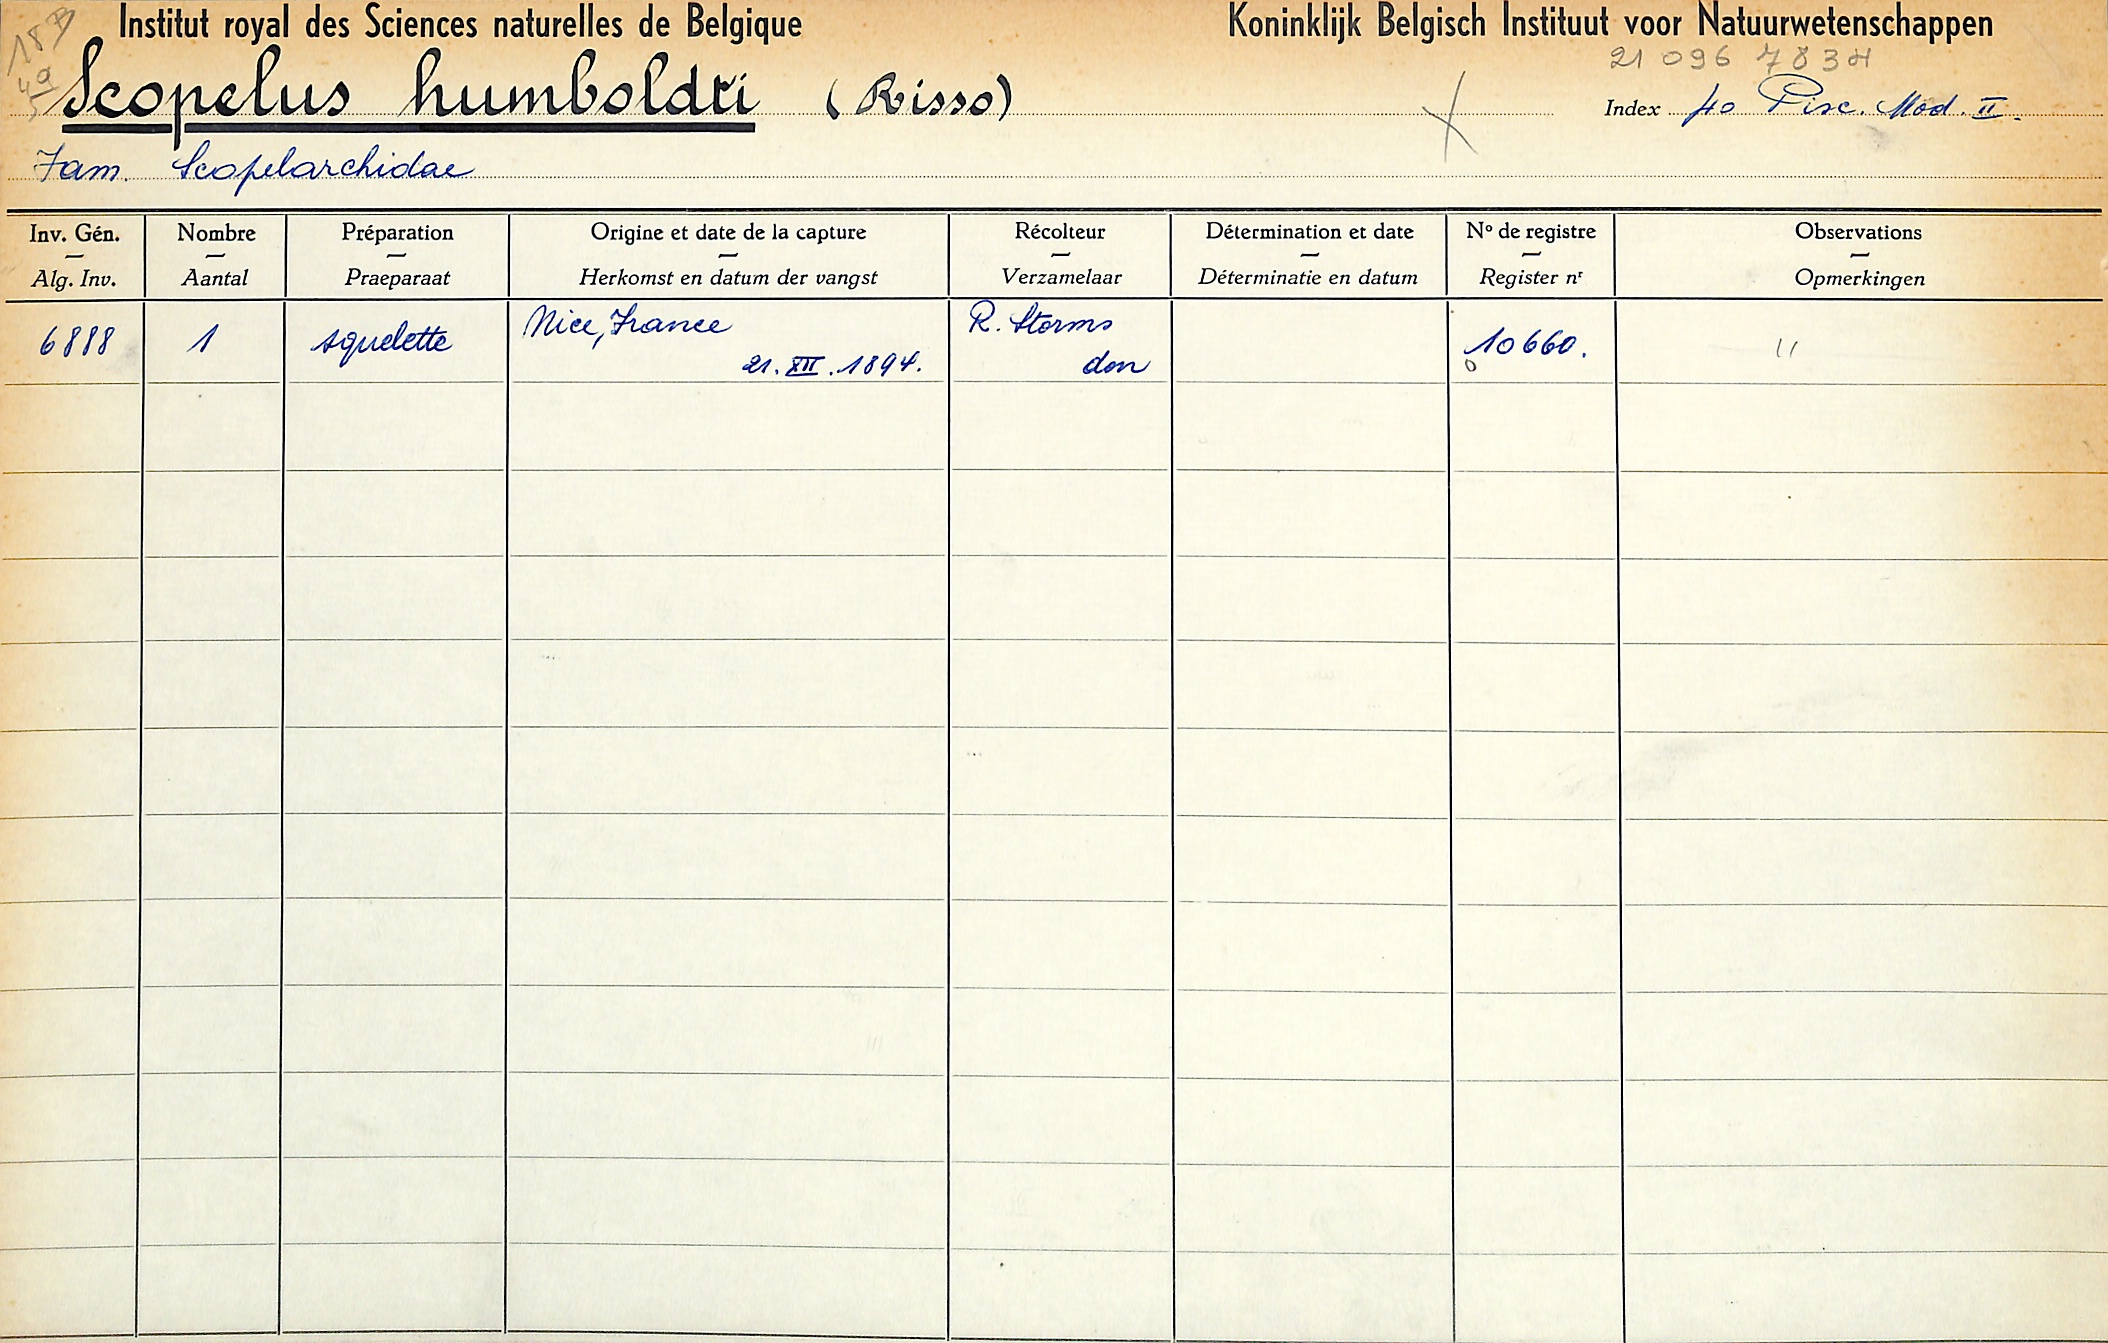 Institut royal des Sciences naturelles de Belgique
Koninklijk Belgisch Instituut voor Natuurwetenschappen
18B
21 096 7834
Scopelus humboldti (Risso)
Index 40 Pisc. Mod. II.
Fam. Scopelarchidae
Inv. Gén. Nombre Préparation Origine et date de la capture Récolteur Détermination et date No de registre Observations
Alg. Inv. Aantal Praeparaat Herkomst en datum der vangst Verzamelaar Déterminatie en datum Register nr Opmerkingen
6888 1 squelette Nice, France R. Storms 10660. 11
21. XII. 1894. don